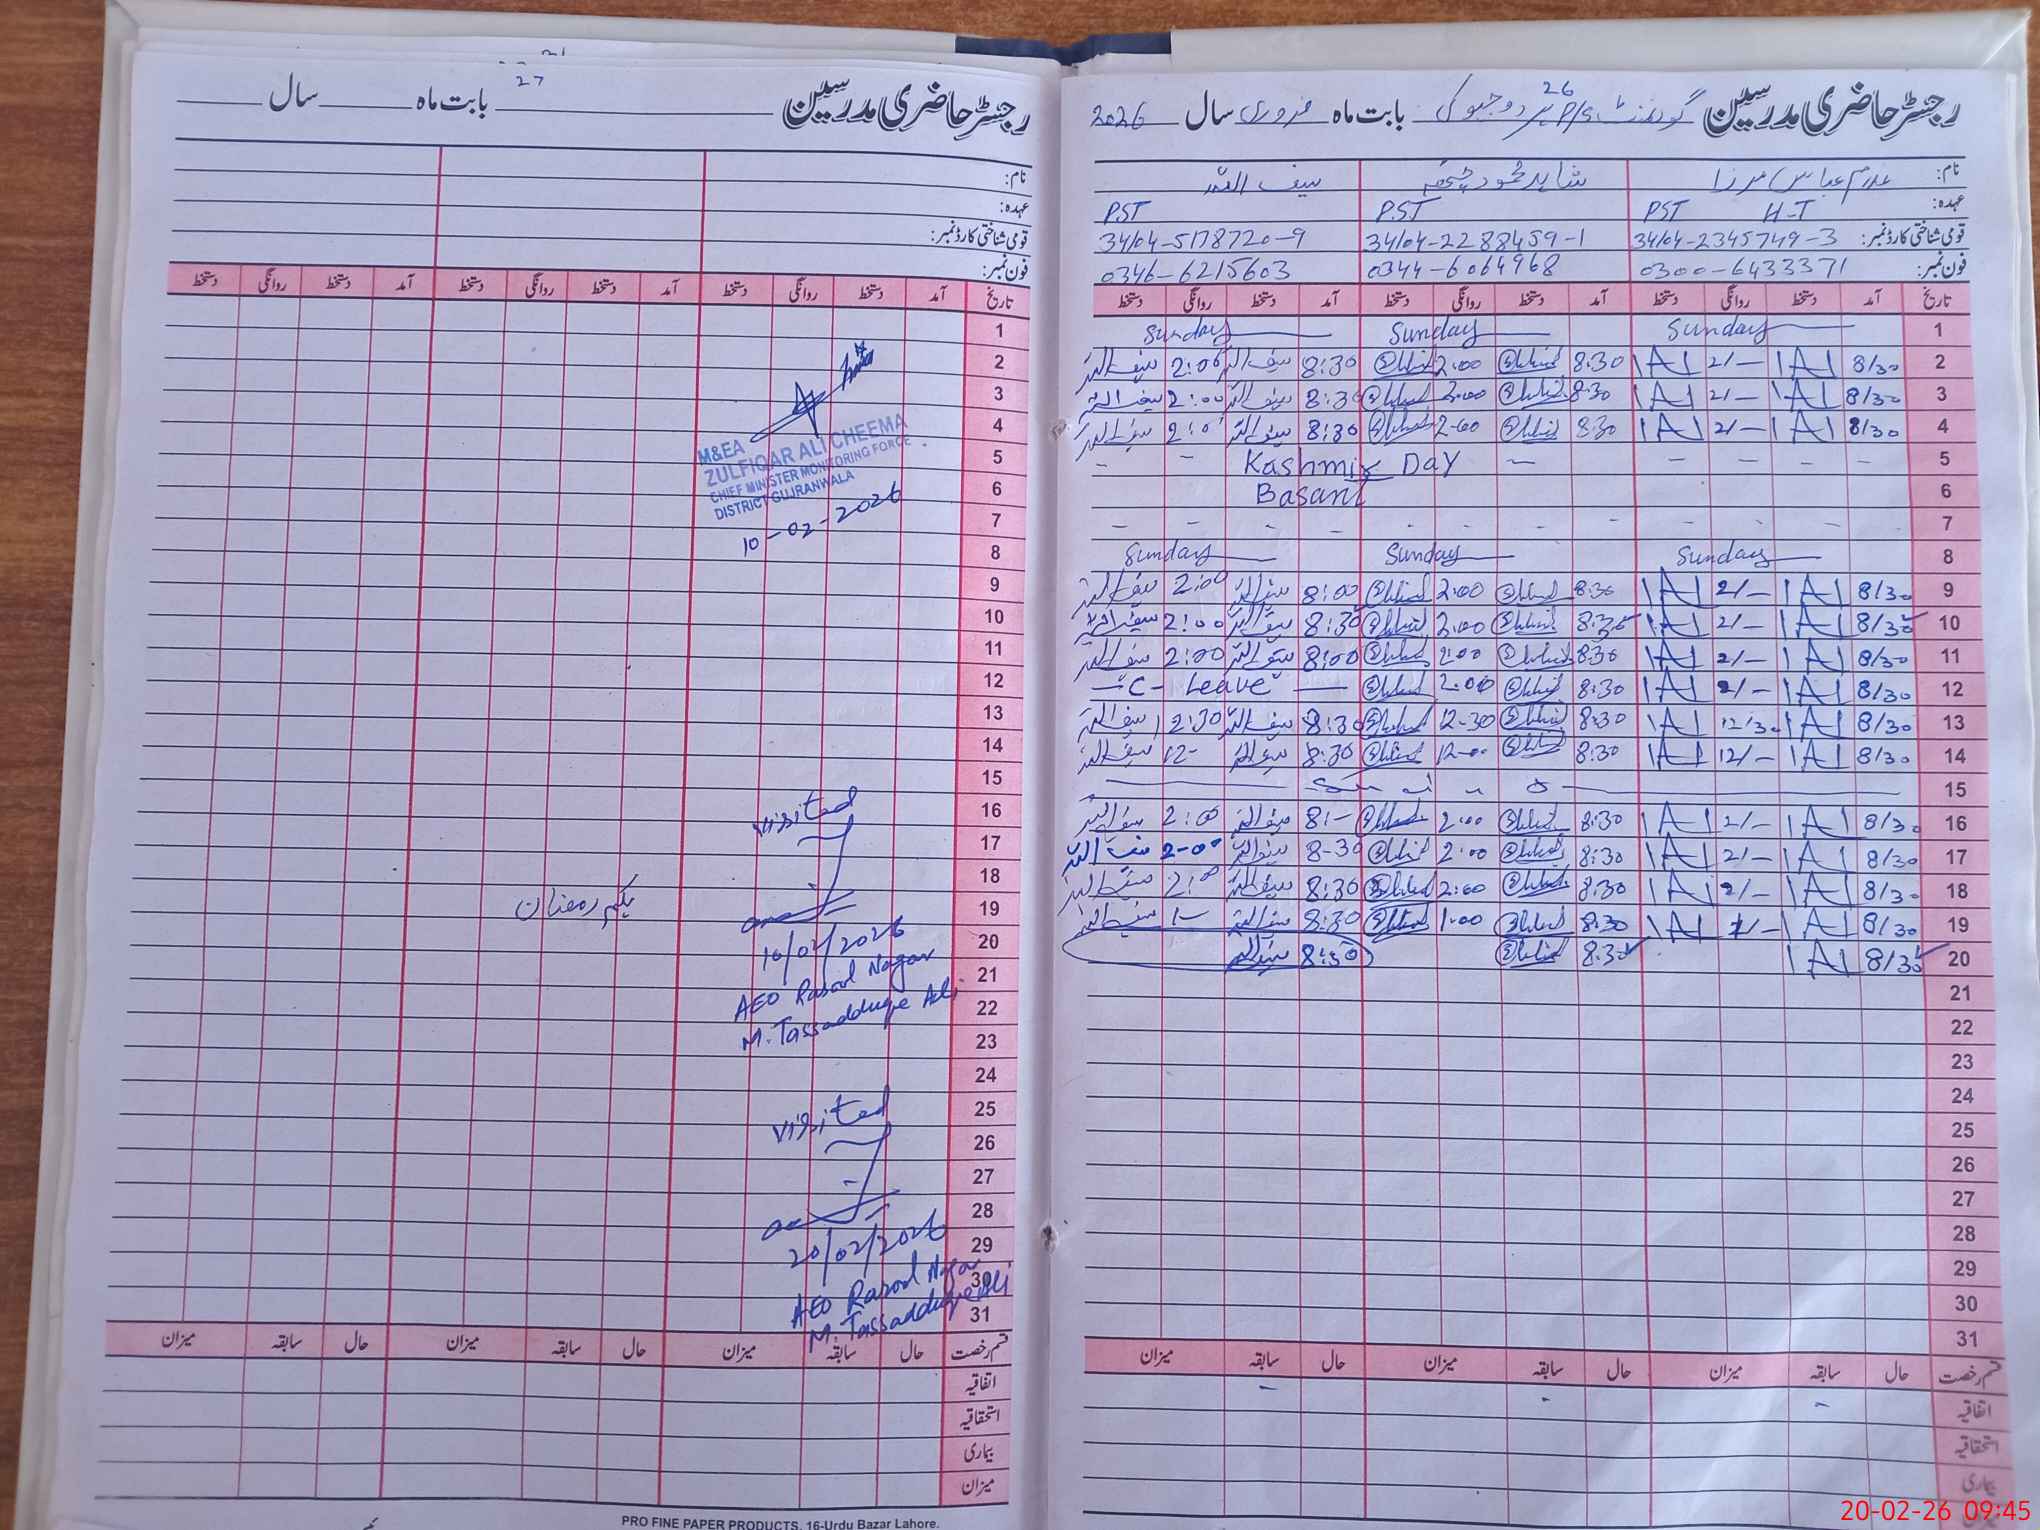 27
رجسٹر حاضری مدرسین ______ بابت ماہ ______ سال ______
نام:
عہدہ:
قومی شناختی کارڈ نمبر:
فون نمبر:
تاریخ آمد دستخط روانگی دستخط آمد دستخط روانگی دستخط آمد دستخط روانگی دستخط
1
2
3
4
M&EA
ZULFIQAR ALI CHEEMA
CHIEF MINISTER MONITORING FORCE
DISTRICT GUJRANWALA
10-02-2026
5
6
7
8
9
10
11
12
13
14
15
16 visited
17
18
19 یکم رمضان
20 16/02/2026
21 AEO Rasool Nagar
22 M. Tassadduqe Ali
23
24
25 visited
26
27
28
29 20/02/2026
30 AEO Rasool Nagar
31 M. Tassadduqe Ali
قسم رخصت حال سابقہ میزان حال سابقہ میزان حال سابقہ میزان
اتفاقیہ
استحقاقیہ
بیماری
میزان
PRO FINE PAPER PRODUCTS, 16-Urdu Bazar Lahore.
26
رجسٹر حاضری مدرسین گورنمنٹ P/S بابت ماہ فروری سال 2026
نام: غلام عباس مرزا شاہد محمود چٹھہ سیف اللہ
عہدہ: PST H-T P.ST P.ST
قومی شناختی کارڈ نمبر: 34104-2345749-3 34104-2288459-1 34104-5178720-9
فون نمبر: 0300-6433371 0344-6064968 0346-6215603
تاریخ آمد دستخط روانگی دستخط آمد دستخط روانگی دستخط آمد دستخط روانگی دستخط
1 Sunday Sunday Sunday
2 8/30 2/- 8:30 2:00 8:30 سیف اللہ 2:00 سیف اللہ
3 8/30 2/- 8:30 2:00 8:30 سیف اللہ 2:00 سیف اللہ
4 8/30 2/- 8:30 2:00 8:30 سیف اللہ 2:0 سیف اللہ
5 Kashmir Day
6 Basant
7
8 Sunday Sunday Sunday
9 8/30 2/- 8:30 2:00 8:00 سیف اللہ 2:00 سیف اللہ
10 8/30 2/- 8:30 2:00 8:30 سیف اللہ 2:00 سیف اللہ
11 8/30 2/- 8:30 2:00 8:00 سیف اللہ 2:00 سیف اللہ
12 8/30 2/- 8:30 2:00 C- Leave
13 8/30 12/30 8:30 12-30 8:30 سیف اللہ 12:30 سیف اللہ
14 8/30 12/- 8:30 12-00 8:30 سیف اللہ 12- سیف اللہ
15
16 8/30 2/- 8:30 2:00 8:- سیف اللہ 2:00 سیف اللہ
17 8/30 2/- 8:30 2:00 8-30 سیف اللہ 2-00 سیف اللہ
18 8/30 2/- 8:30 2:00 8:30 سیف اللہ 2:00 سیف اللہ
19 8/30 1/- 8:30 1:00 8:30 سیف اللہ 1- سیف اللہ
20 8/30 8:30 8:30 سیف اللہ
21
22
23
24
25
26
27
28
29
30
31
قسم رخصت حال سابقہ میزان حال سابقہ میزان حال سابقہ میزان
اتفاقیہ
استحقاقیہ
بیماری
20-02-26 09:45